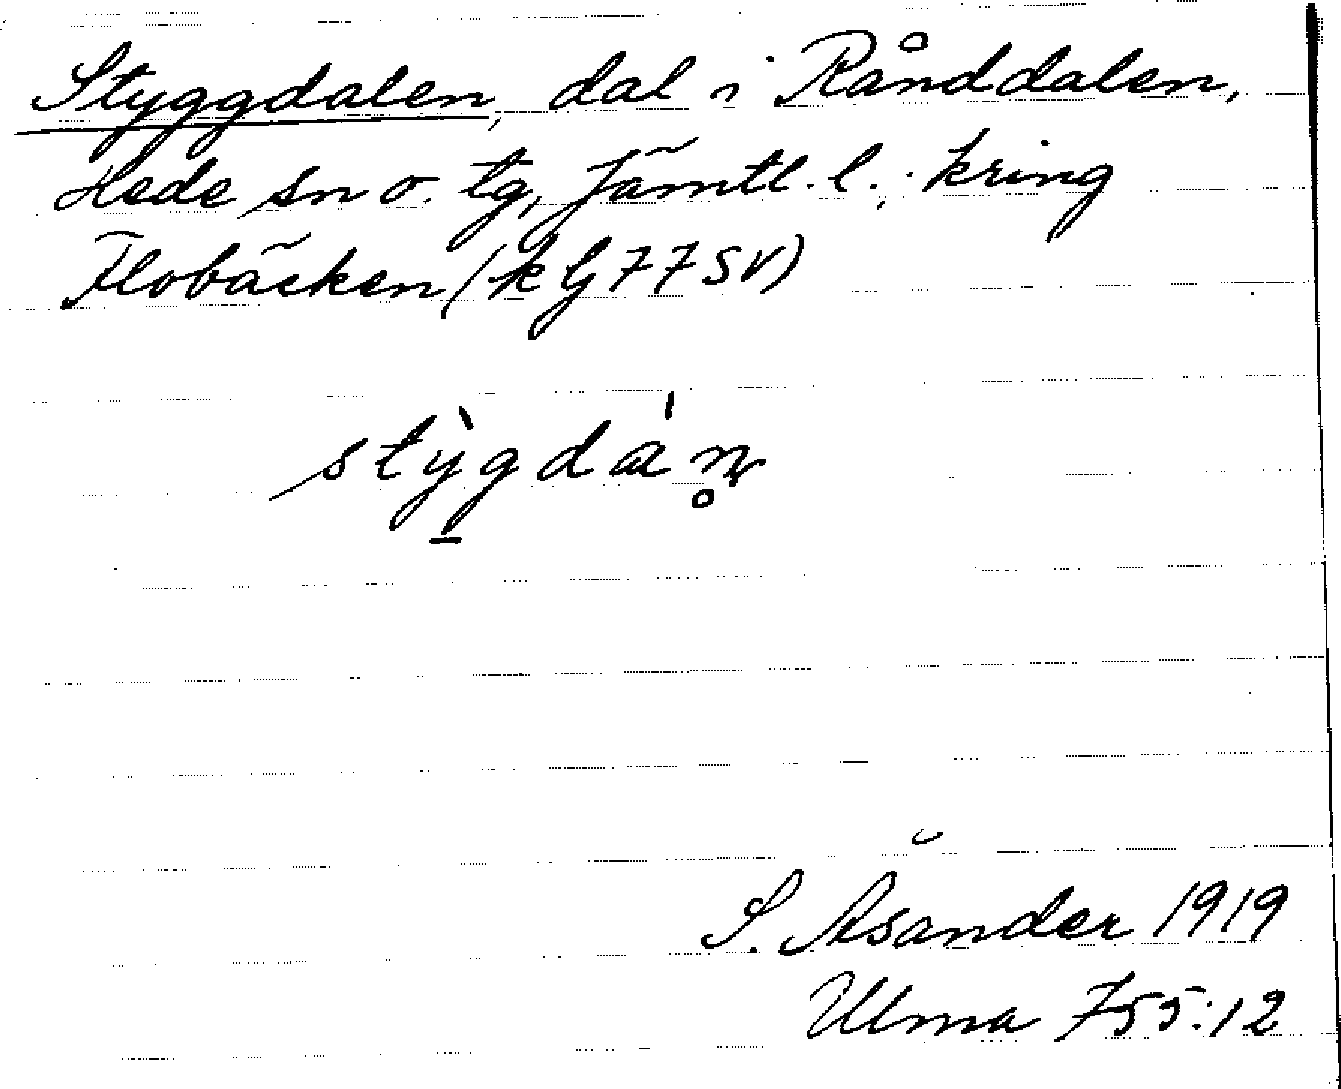 Styggdalen, dal i Rånddalen,
Hede sn o. tg, Jämtl. l.; kring
Flobäcken (k G 77 SV)
stỳgdán̥
S. Åsander 1919
Ulma 755:12